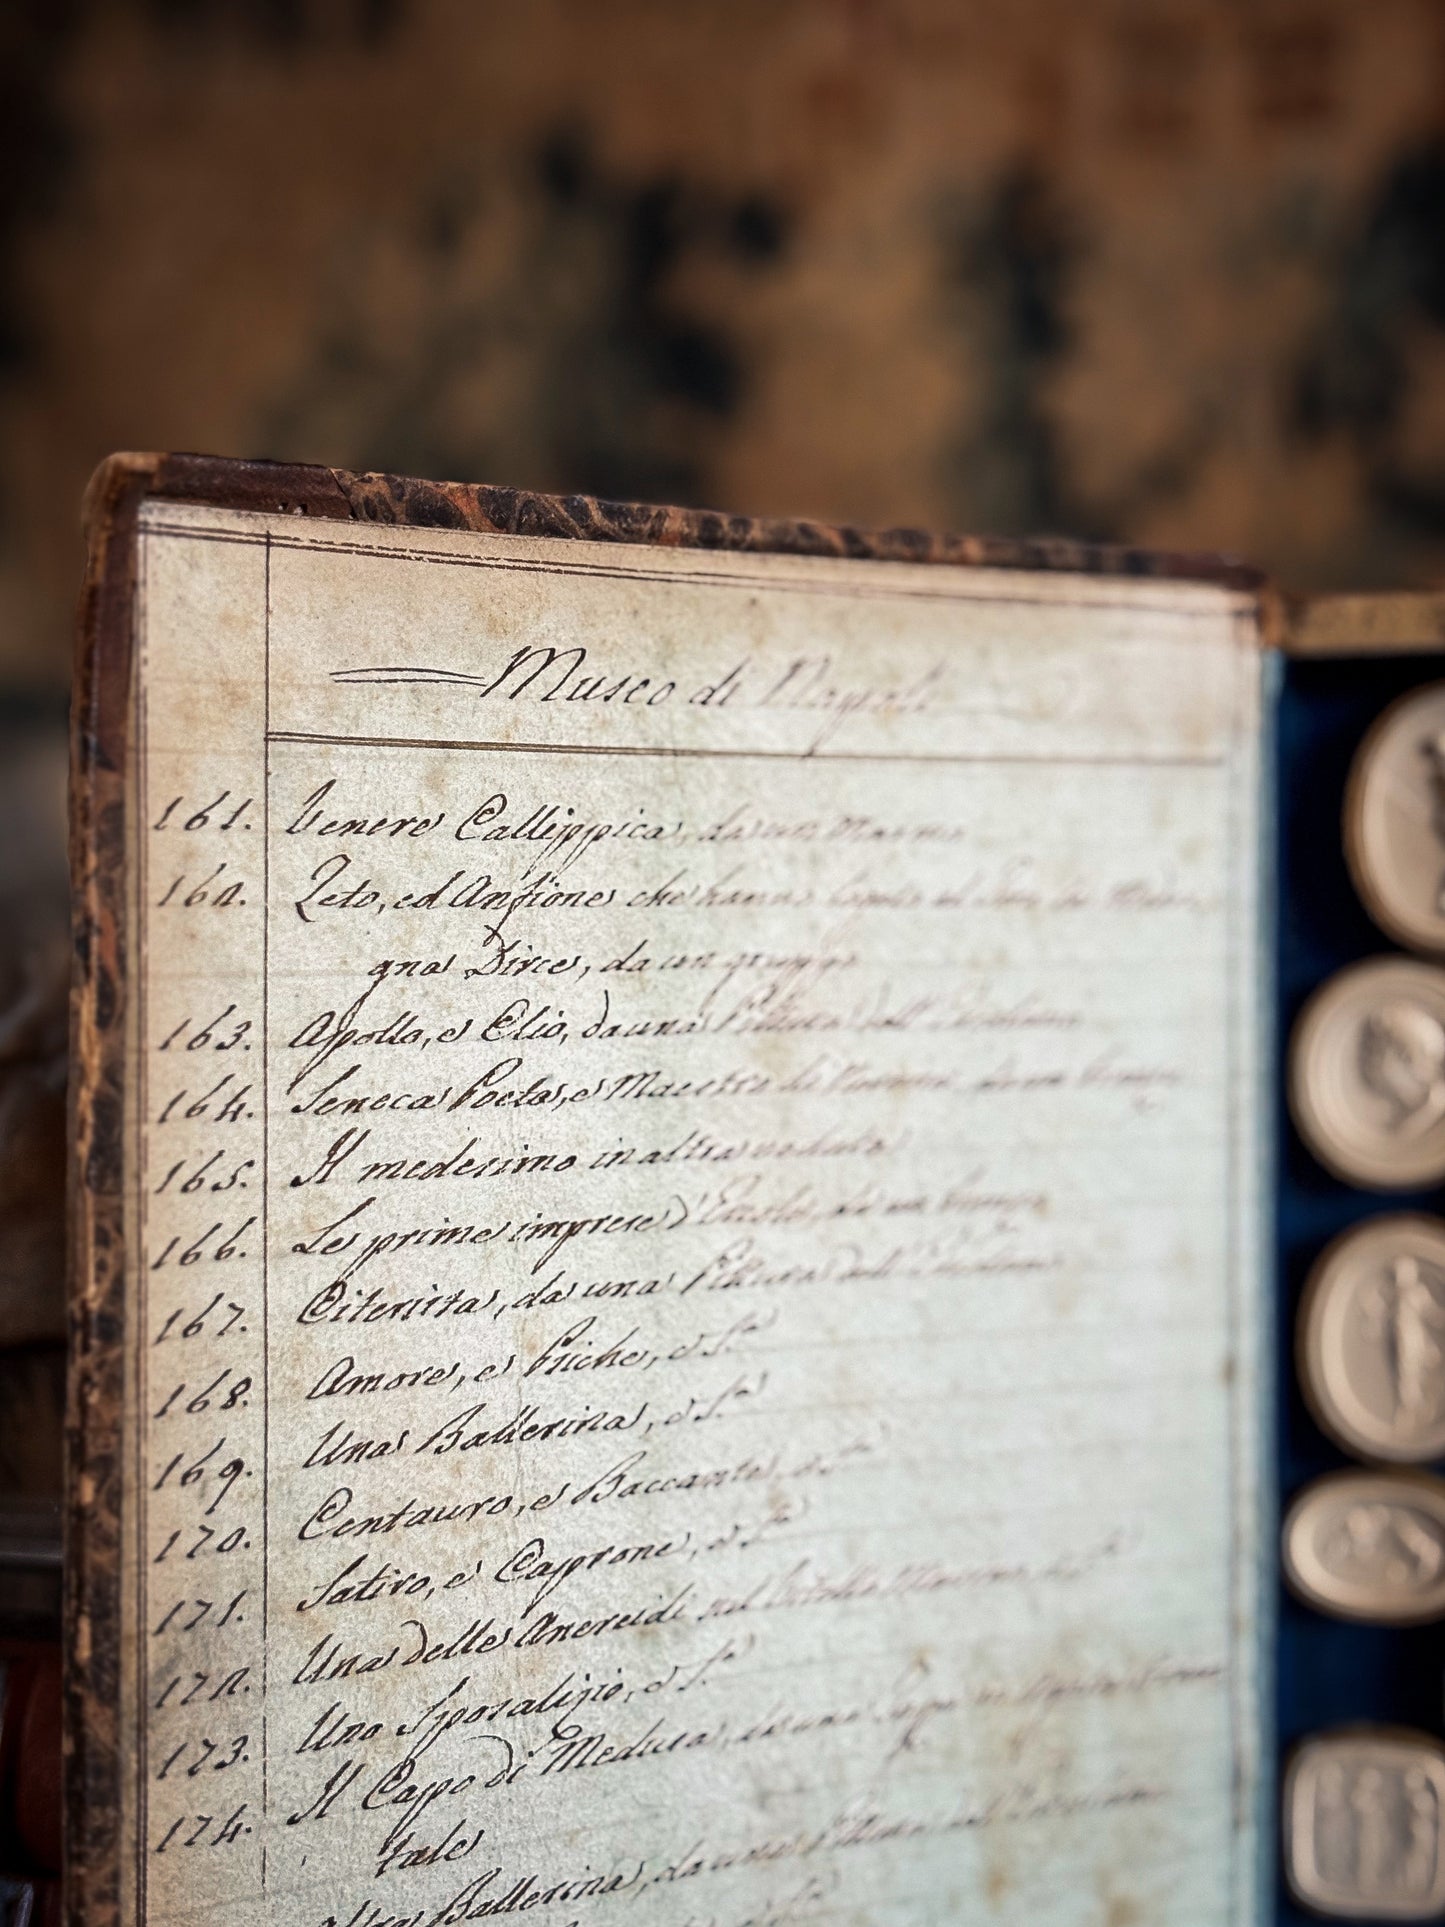 Museo di Napoli
161. Venere Callippica, da un Marmo
162. Zeto, ed Anfione che hanno legato
gna Dirce, da un gruppo
163. Apollo, e Clio, da una Pittura dell'
164. Seneca Poeta, e Maestro di Nerone, da un bronzo
165. Il medesimo in altra veduta
166. Le prime imprese d'Ercole, da un bronzo
167. Citerista, da una Pittura dell'
168. Amore, e Psiche, e S.a
169. Una Ballerina, e S.a
170. Centauro, e Baccante, e S.a
171. Satiro, e Caprone, e S.a
172. Una delle Anereidi sul
173. Uno Sposalizio, e S.a
174. Il Capo di Medusa, da una
tale
altra Ballerina, da una Pittura